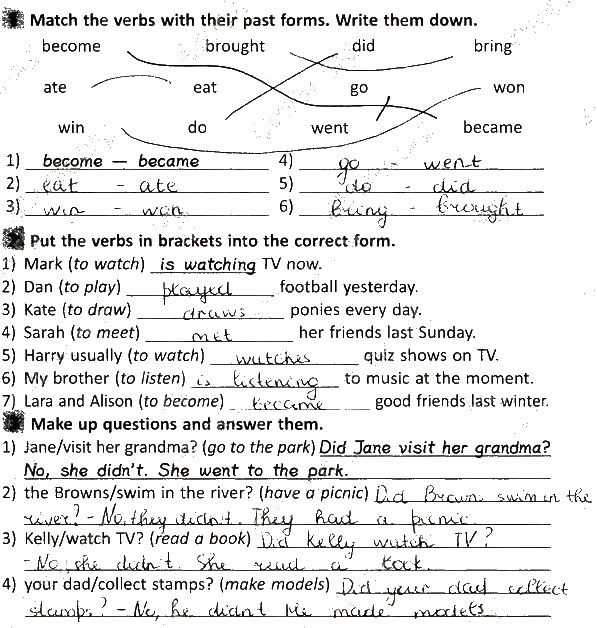 1 Match the verbs with their past forms. Write them down.
become brought did bring
ate eat go won
win do went became
1) become — became 4) go - went
2) eat - ate 5) do - did
3) win - won 6) bring - brought
2 Put the verbs in brackets into the correct form.
1) Mark (to watch) is watching TV now.
2) Dan (to play) played football yesterday.
3) Kate (to draw) draws ponies every day.
4) Sarah (to meet) met her friends last Sunday.
5) Harry usually (to watch) watches quiz shows on TV.
6) My brother (to listen) is listening to music at the moment.
7) Lara and Alison (to become) became good friends last winter.
3 Make up questions and answer them.
1) Jane/visit her grandma? (go to the park) Did Jane visit her grandma?
No, she didn't. She went to the park.
2) the Browns/swim in the river? (have a picnic) Did Brown swim in the
river? - No, they didn't. They had a picnic
3) Kelly/watch TV? (read a book) Did Kelly watch TV?
- No, she didn't. She read a book.
4) your dad/collect stamps? (make models) Did your dad collect
stamps? - No, he didn't He made models